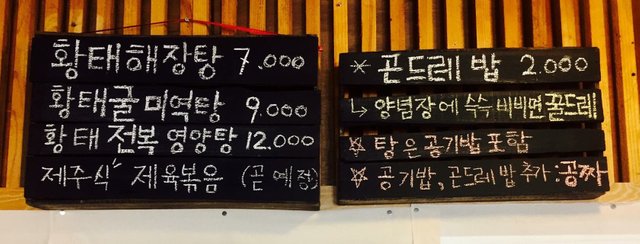 황태해장탕 7.000
황태굴미역탕 9.000
황태전복영양탕 12.000
제주식" 제육볶음 (곧 예정)
* 곤드레밥 2.000
↳ 양념장에 쓱쓱 비비면 꿀드레
☆ 탕은 공기밥포함
☆ 공기밥, 곤드레밥추가:공짜